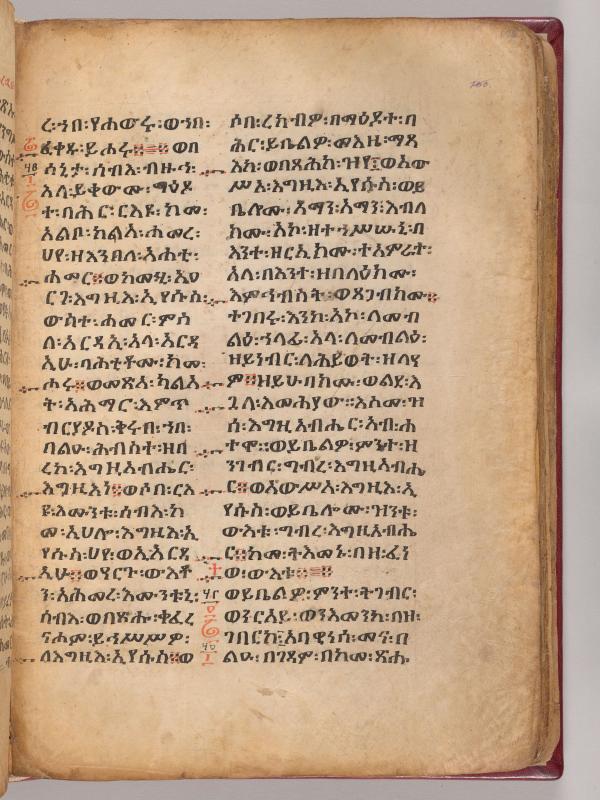 ረ፡ኀበ፡የሐውሩ፡ወኀበ፡
ፈቀዱ፡ይሐሩ።ወበ
ሳኒታ፡ሰብእ፡ብዙኅ፡
እለ፡ይቀውሙ፡ማዕዶ
ተ፡ባሕር፡ርእዩ፡ከመ፡
አልቦ፡ካልእ፡ሐመረ፡
ህየ፡ዘእንበለ፡አሐቲ፡
ሐመር።ወከመሂ፡ኢዐ
ርገ፡እግዚእ፡ኢየሱስ፡
ውስተ፡ሐመር፡ምስ
ለ፡አርዳኢ፡አላ፡አርዳ
ኢሁ፡ባሕቲቶሙ፡ከመ፡
ሖሩ።ወመጽአ፡ካልእ
ት፡አሕማር፡እምጥ
ብርያዶስ፡ቅሩብ፡ኀበ፡
በልዑ፡ኅብስተ፡ዘባ
ረከ፡እግዚአብሔር፡
እግዚእነ።ወሶበ፡ርእ
ዩ፡እሙንቱ፡ሰብእ፡ከ
መ፡ኢሀሎ፡እግዚእ፡ኢ
የሱስ፡ህየ፡ወኢአርዳ
ኢሁ።ወዐርጉ፡ውእቶ
ን፡አሕመረ፡እሙንቱኒ፡
ሰብእ፡ወበጽሑ፡ቅፈረ
ናሆም፡ይኀሥሥዎ፡
ለእግዚእ፡ኢየሱስ።ወ
ሶበ፡ረከብዎ፡በማዕዶተ፡ባ
ሕር፡ይቤልዎ፡መእዜ፡ማጻ
እከ፡ወበጻሕከ፡ዝየ፤ወአው
ሥአ፡እግዚእ፡ኢየሱስ፡ወይ
ቤሎሙ፡አማን፡አማን፡እብለ
ክሙ፡አኮ፡ዘተኀሥሡኒ፡በ
እንተ፡ዘርኢክሙ፡ተአምረተ፡
አላ፡በእንተ፡ዘበላዕክሙ፡
እምኅብስት፡ወጸገብክሙ።
ተገበሩ፡እንከ፡አኮ፡ለመብ
ልዕ፡ኀላፊ፡አላ፡ለመብልዕ፡
ዘይነብር፡ለሕይወት፡ዘላዓ
ም።ዘይሁበክሙ፡ወልደ፡እ
ጓለ፡እመሕያው።እስመ፡ዝ
ሰ፡እግዚአብሔር፡አብ፡ሐ
ተሞ።ወይቤልዎ፡ምንተ፡ዘ
ንገብር፡ግብረ፡እግዚአብሔ
ር።ወአውሥአ፡እግዚእ፡ኢ
የሱስ፡ወይቤሎሙ፡ዝንቱ፡
ውእቱ፡ግብረ፡እግዚአብሔ
ር።ከመ፡ትእመኑ፡በዘ፡ፈነ
ወ፡ውእቱ።
ወይቤልዎ፡ምንተ፡ትገብር፡
ወንርአይ፡ወንእመንከ፡በዘ፡
ገበርከ፤አባዊነሰ፡መና፡በ
ልዑ፡በገዳም፡በከመ፡ጽሑ